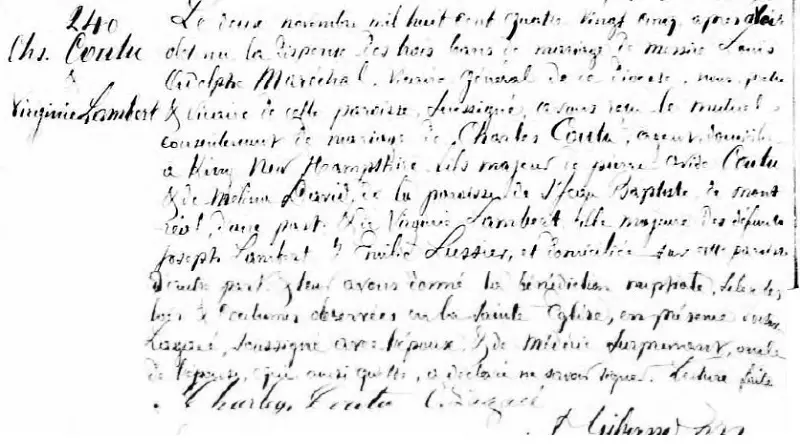 240
Chs. Coutu
&
Virginie Lambert
Le deux novembre mil huit cent quatre vingt cinq, après avoir
obtenu la dispense des trois bans de mariage de messire Louis
Adolphe Maréchal, Vicaire Général de ce diocèse, nous prêtre
& vicaire de cette paroisse, soussigné, avons reçu le mutuel
consentement de mariage de Charles Coutu, domicilié
à New Hampshire, fils majeur de pierre Coutu
& de Melina David, de la paroisse de St Jean Baptiste de mont
réal, d'une part & de Virginie Lambert, fille majeure des défunts
Joseph Lambert & Emilie Lussier, et domiciliée sur cette paroisse
d'autre part & leur avons donné la bénédiction nuptiale, selon les
lois & coutumes observées en la Sainte Eglise, en présence
soussigné avec l'époux & de Médéric Surprenant, oncle
de l'épouse, qui ainsi qu'elle, a déclaré ne savoir signer. Lecture faite
Charles Coutu